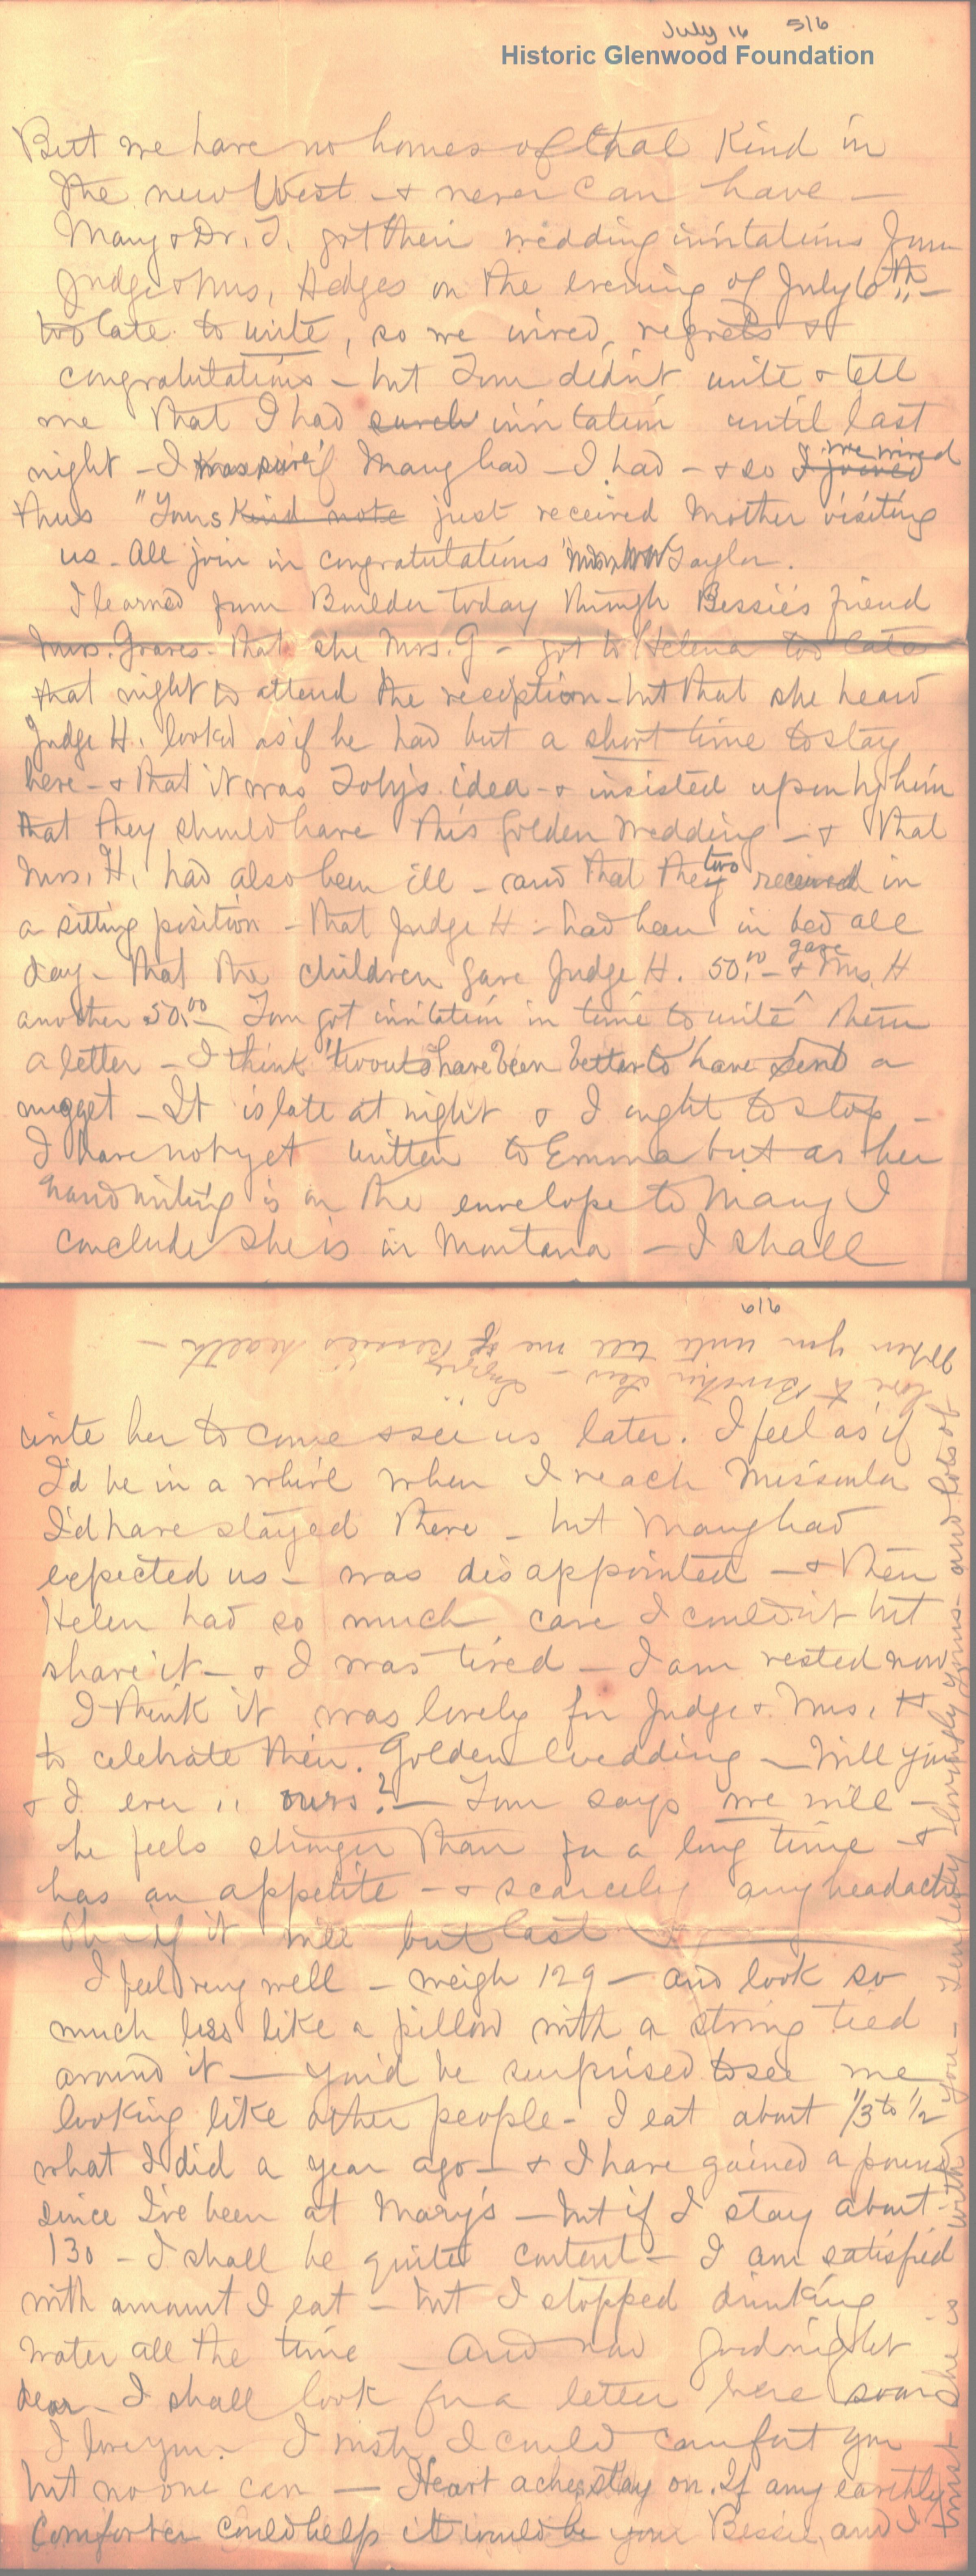 July 16 5/6
Historic Glenwood Foundation
But we have no homes of that Kind in
the new West - & never can have -
Mary & Dr. T. got their wedding invitations from
Judge & Mrs. Hedges on the evening of July 6th -
too late to write, so we wired, regrets &
congratulations - but Tom didn't write & tell
me that I had such invitation until last
night - I was sure if Mary had - I had - & so I joined we wired
thus "Yours Kind note just received Mother visiting
us - All join in congratulations" Taylor.
I learned from Boulder today through Bessie's friend
Mrs. Graves - that she Mrs. G - got to Helena too late
that night to attend the reception - but that she heard
Judge H. looked as if he had but a short time to stay
here - & that it was Toby's idea - & insisted upon by him
that they should have this Golden Wedding - & that
Mrs. H. had also been ill - and that they two received in
a sitting position - that Judge H - had been in bed all
day - that the children gave Judge H. 50.00 - & gave Mrs. H
another 50.00 Tom got invitation in time to write them
a letter - I think 'twould have been better to have sent a
nugget - It is late at night & I ought to stop -
I have not yet written to Emma but as her
handwriting is on the envelope to Mary I
conclude she is in Montana - I shall
6/6
When you write tell me of Bessie's health -
love to
write her to come & see us later. I feel as if
I'd be in a whirl when I reach Missoula
I'd have stayed there - but Mary had
expected us - was disappointed - & then
Helen had so much care I couldn't but
share it - & I was tired - I am rested now
I think it was lovely for Judge & Mrs. H
to celebrate their Golden Wedding - Will you
& I ever " ours? - Tom says we will -
he feels stronger than for a long time &
has an appetite - & scarcely any headache
Oh - if it will but last
I feel very well - weigh 129 - and look so
much less like a pillow with a string tied
around it - you'd be surprised to see me
looking like other people - I eat about 1/3 to 1/2
what I did a year ago - & I have gained a pound
since I've been at Mary's - but if I stay about
130 - I shall be quite content - I am satisfied
with amount I eat - but I stopped drinking
water all the time - And now goodnight
dear - I shall look for a letter here soon
I love you. I wish I could comfort you
but no one can - Heart aches stay on. If any earthly
Comforter could help it would be your Bessie, and I
trust she is with you - Tenderly & lovingly yours - and lots of